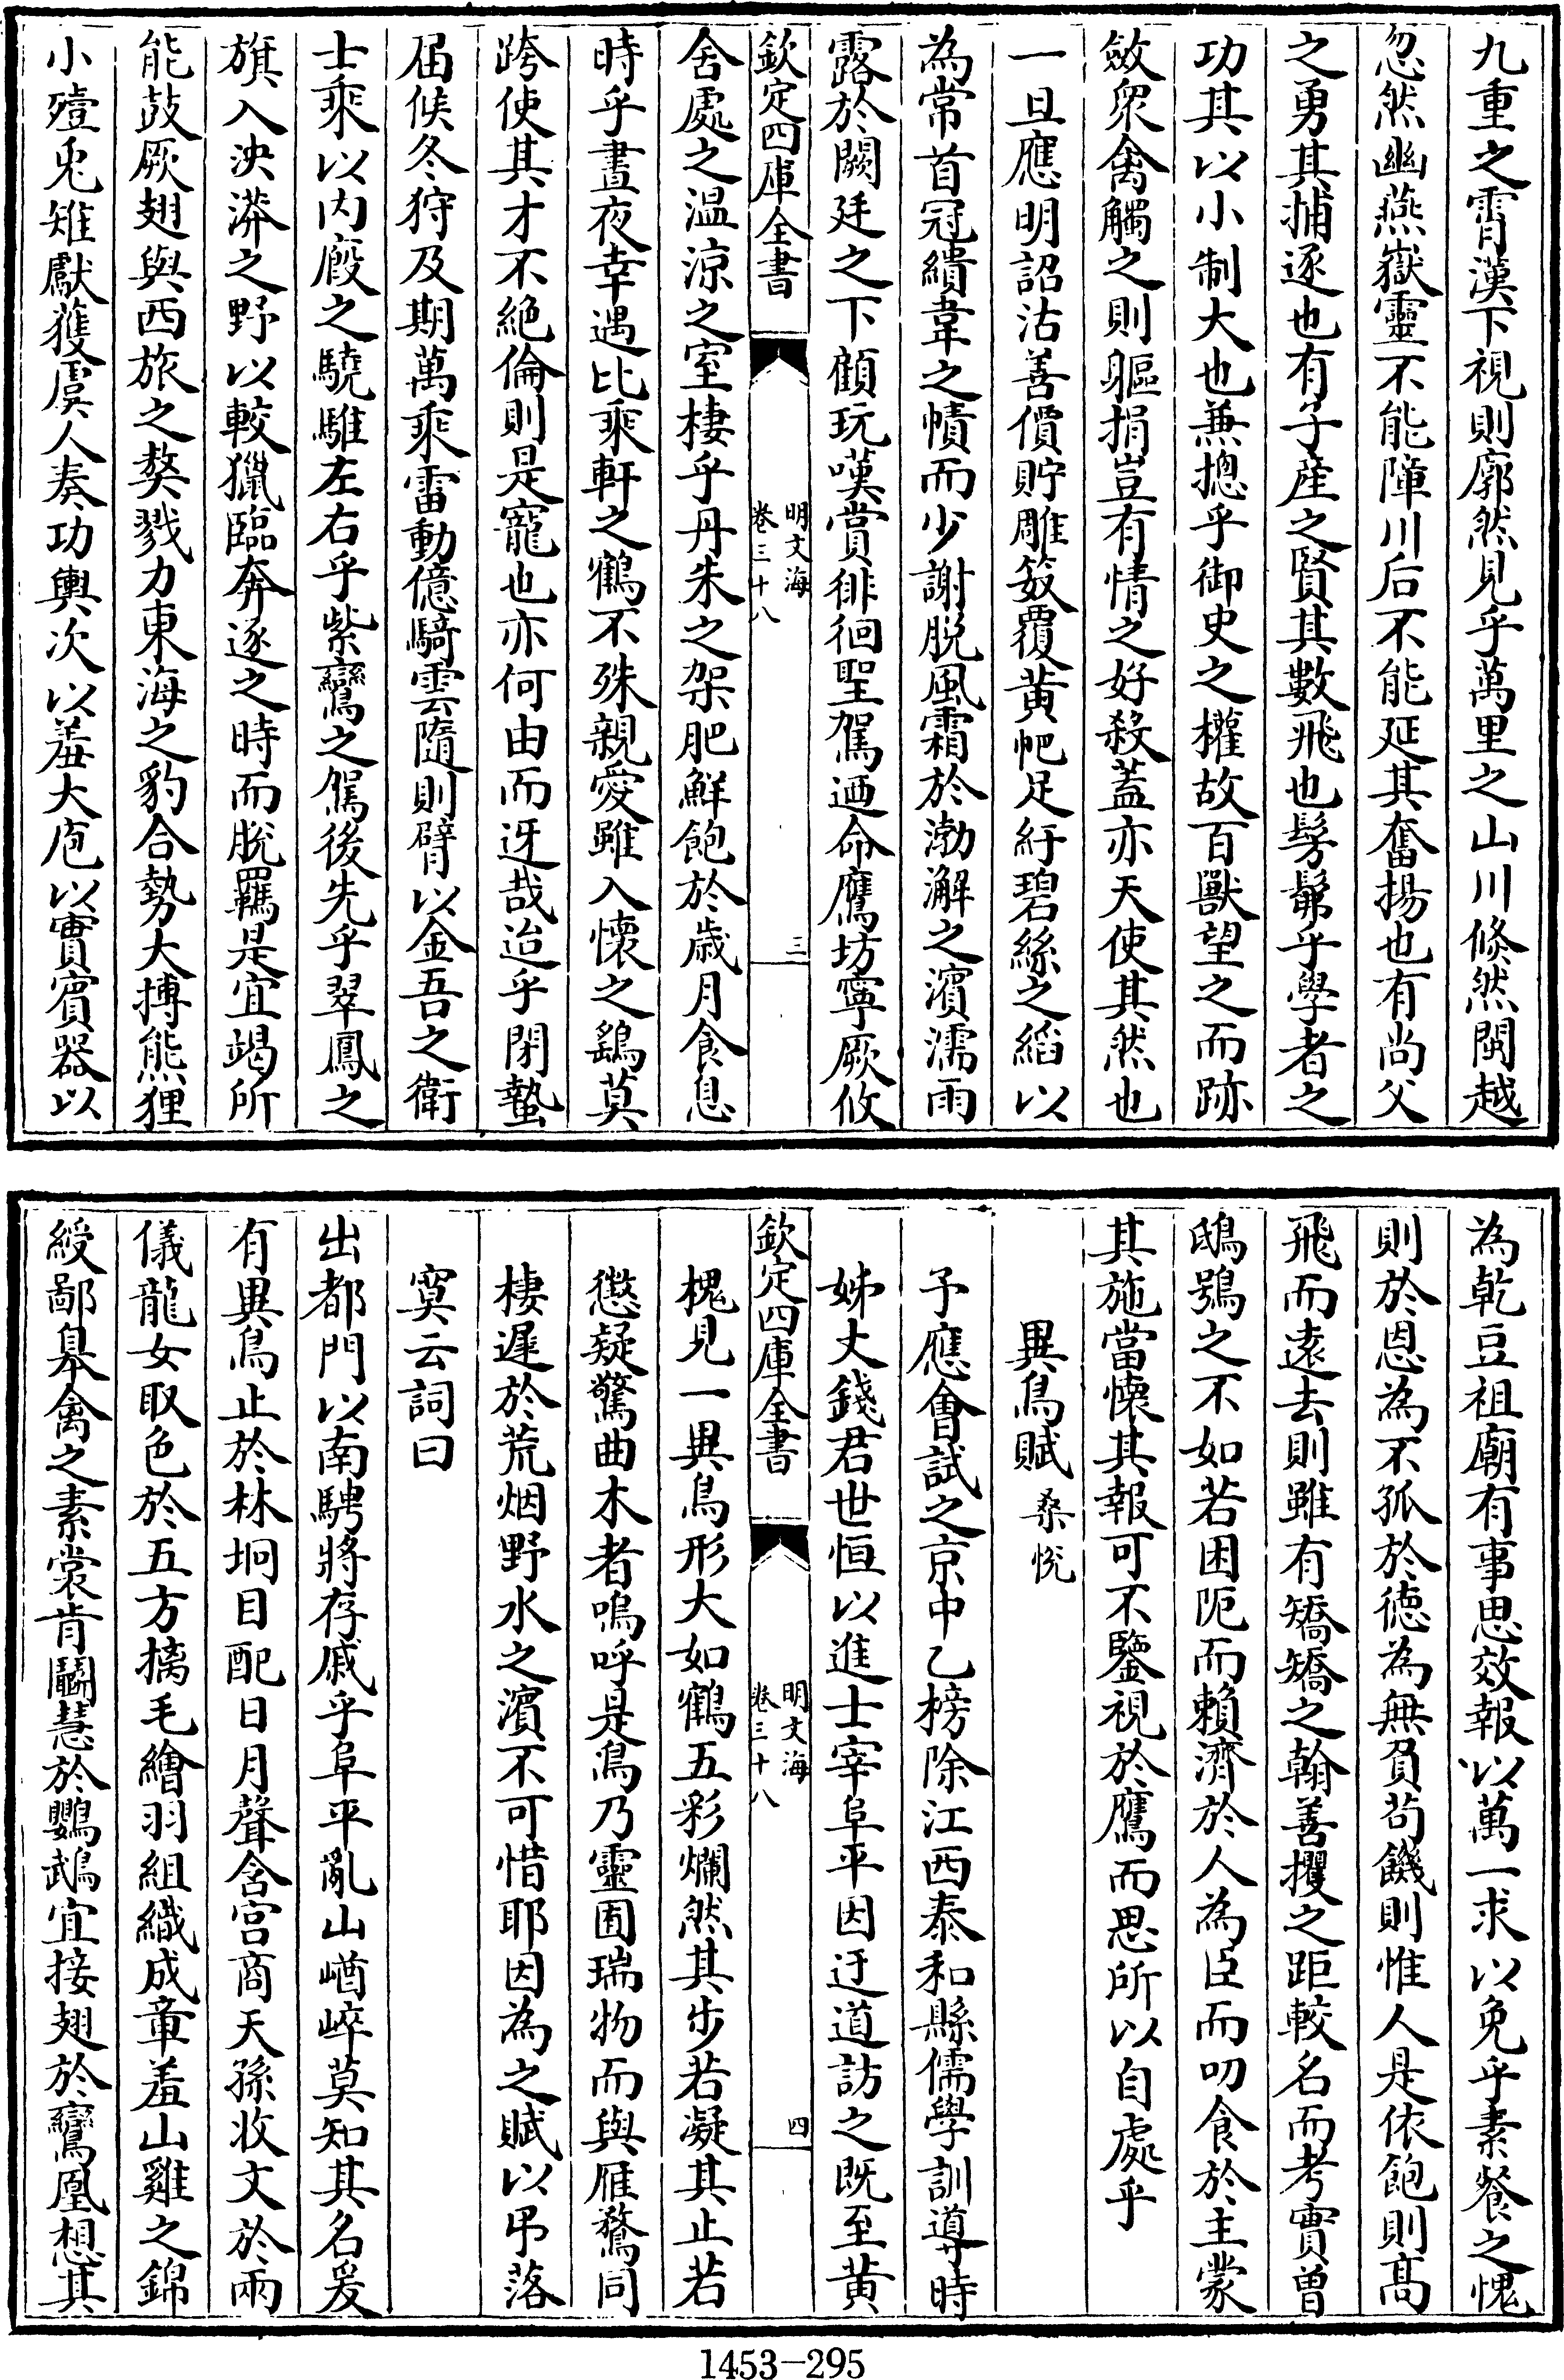 九重之霄漢下視則廓然見乎萬里之山川倐然閩越
忽然幽燕嶽靈不能障川后不能延其奮揚也有尚父
之勇其捕逐也有子産之賢其數飛也髣髴乎學者之
功其以小制大也兼摠乎御史之權故百獸望之而跡
斂衆禽觸之則軀捐豈有情之好殺蓋亦天使其然也
一旦應明詔沽善價貯雕笯覆黄帊足紆碧絲之縚以
為常首冠繢韋之幘而少謝脱風霜於渤澥之濱濡雨
露於闕廷之下顧玩嘆賞徘徊聖駕廼命鷹坊寧厥攸
欽定四庫全書
明文海
卷三十八
三
舍處之温涼之室棲乎丹朱之架肥鮮飽於歲月食息
時乎晝夜幸遇比乘軒之鶴不殊親愛雖入懷之鷂莫
跨使其才不絶倫則是寵也亦何由而迓哉迨乎閉蟄
届候冬狩及期萬乘雷動億騎雲隨則臂以金吾之衛
士乘以内廏之驍騅左右乎紫鸞之駕後先乎翠鳳之
旗入泱漭之野以較獵臨奔逐之時而脱羈是宜竭所
能鼓厥翅與西旅之獒戮力東海之豹合勢大搏熊狸
小殪兎雉獻獲虞人奏功輿次以羞大庖以實賔器以
為乾豆祖廟有事思效報以萬一求以免乎素餐之愧
則於恩為不孤於徳為無負茍饑則惟人是依飽則高
飛而遠去則雖有矯矯之翰善攫之距較名而考實曽
鴟鴞之不如若困阨而頼濟於人為臣而叨食於主蒙
其施當懷其報可不鑒視於鷹而思所以自處乎
異鳥賦 桑悦
予應會試之京中乙榜除江西泰和縣儒學訓導時
姊丈錢君世恒以進士宰阜平因迂道訪之既至黄
欽定四庫全書
明文海
卷三十八
四
槐見一異鳥形大如鶴五彩爛然其步若凝其止若
懲疑驚曲木者嗚呼是鳥乃靈囿瑞物而與雁鶩同
棲遲於荒烟野水之濱不可惜耶因為之賦以弔落
寞云詞曰
出都門以南騁將存戚乎阜平亂山崷崪莫知其名爰
有異鳥止於林坰目配日月聲含宫商天孫收文於兩
儀龍女取色於五方摛毛繪羽組織成章羞山雞之錦
綬鄙皋禽之素裳肯鬬慧於鸚鵡宜接翅於鸞凰想其
1453-295